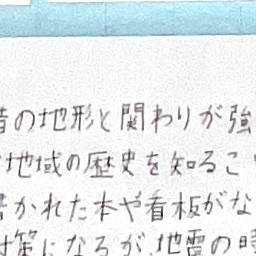 昔の地形と関わりが強
地域の歴史を知るこ
書かれた本や看板がな
対策になるが、地震の時